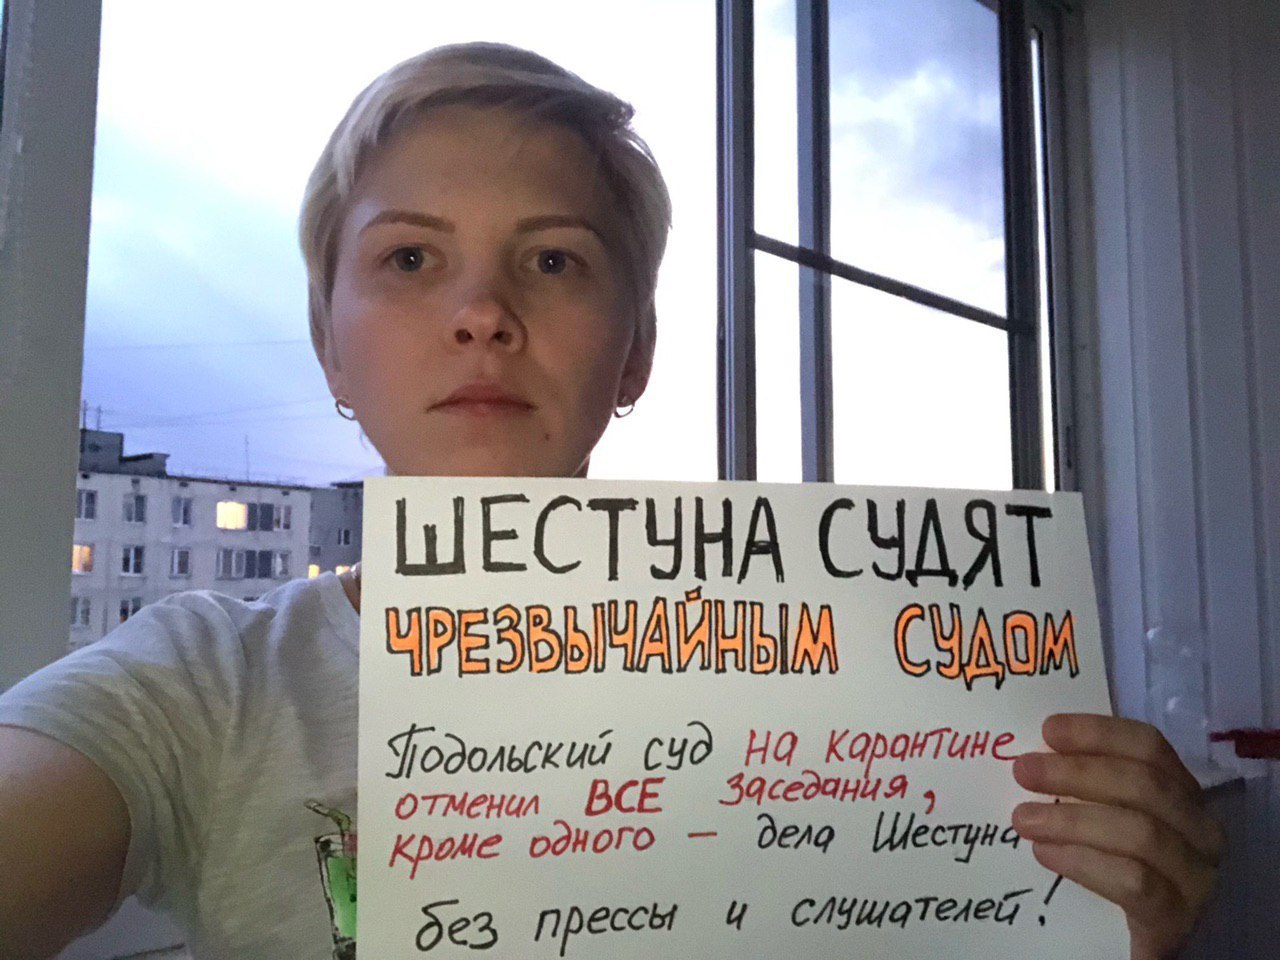 ШЕСТУНА СУДЯТ
ЧРЕЗВЫЧАЙНЫМ СУДОМ
Подольский суд на карантине
отменил ВСЕ заседания,
кроме одного — дела Шестуна
без прессы и слушателей!